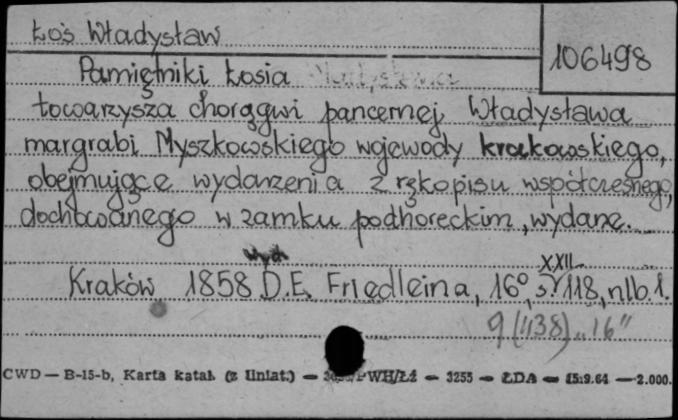 Łoś Władysław
106498
Pamiętniki Łosia
towarzysza chorągwi pancernej Władysława
margrabi Myszkowskiego wojewody krakowskiego,
obejmujące wydarzenia z rękopisu współczesnego,
dochowanego w zamku podhoreckim, wydane.
wyd
XXII
Kraków 1858 D.E. Friedleina, 16°, s. 118, nlb. 1.
9(438) „16"
CWD — B-15-b, Karta katal. (z liniat.) — PWH/Łź — 3255 — ŁDA — 15.9.64 — 2.000.